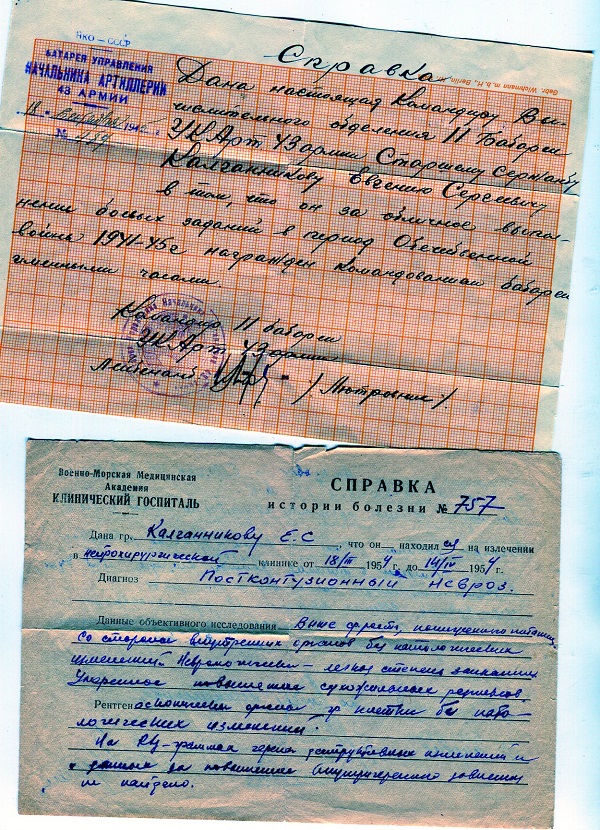 НКО – СССР
БАТАРЕЯ УПРАВЛЕНИЯ
НАЧАЛЬНИКА АРТИЛЛЕРИИ
43 АРМИИ
№
Gebr. Wichmann m. b. H., Berlin
Справка
Дана настоящая Командиру Вы-
числительного отделения II батареи
УКАрт 43 армии Старшему Сержанту
Калганникову Евгению Сергеевичу
в том, что он за отличное выпол-
нение боевых заданий в период Отечественной
войны 1941-45г награжден командованием батареи
именными часами.
Командир II батареи
УКАрт 43 армии
Лейтенант
Военно-Морская Медицинская
Академия
КЛИНИЧЕСКИЙ ГОСПИТАЛЬ
СПРАВКА
истории болезни № 757
Дана гр. Калганникову Е.С , что он находился на излечении
в нейрохирургической клинике от 18/III 1954 г. до 14/IV 1954 г.
Диагноз Постконтузионный Невроз.
Данные объективного исследования Выше среднего, пониженного питания
Со стороны внутренних органов без патологических
изменений. Неврологически – легкая степень
повышение сухожильных рефлексов.
Рентгеноскопически органы гр клетки без пато-
логических изменений.
На черепа деструктивных изменений и
данных за повышение внутричерепного давления
не найдено.